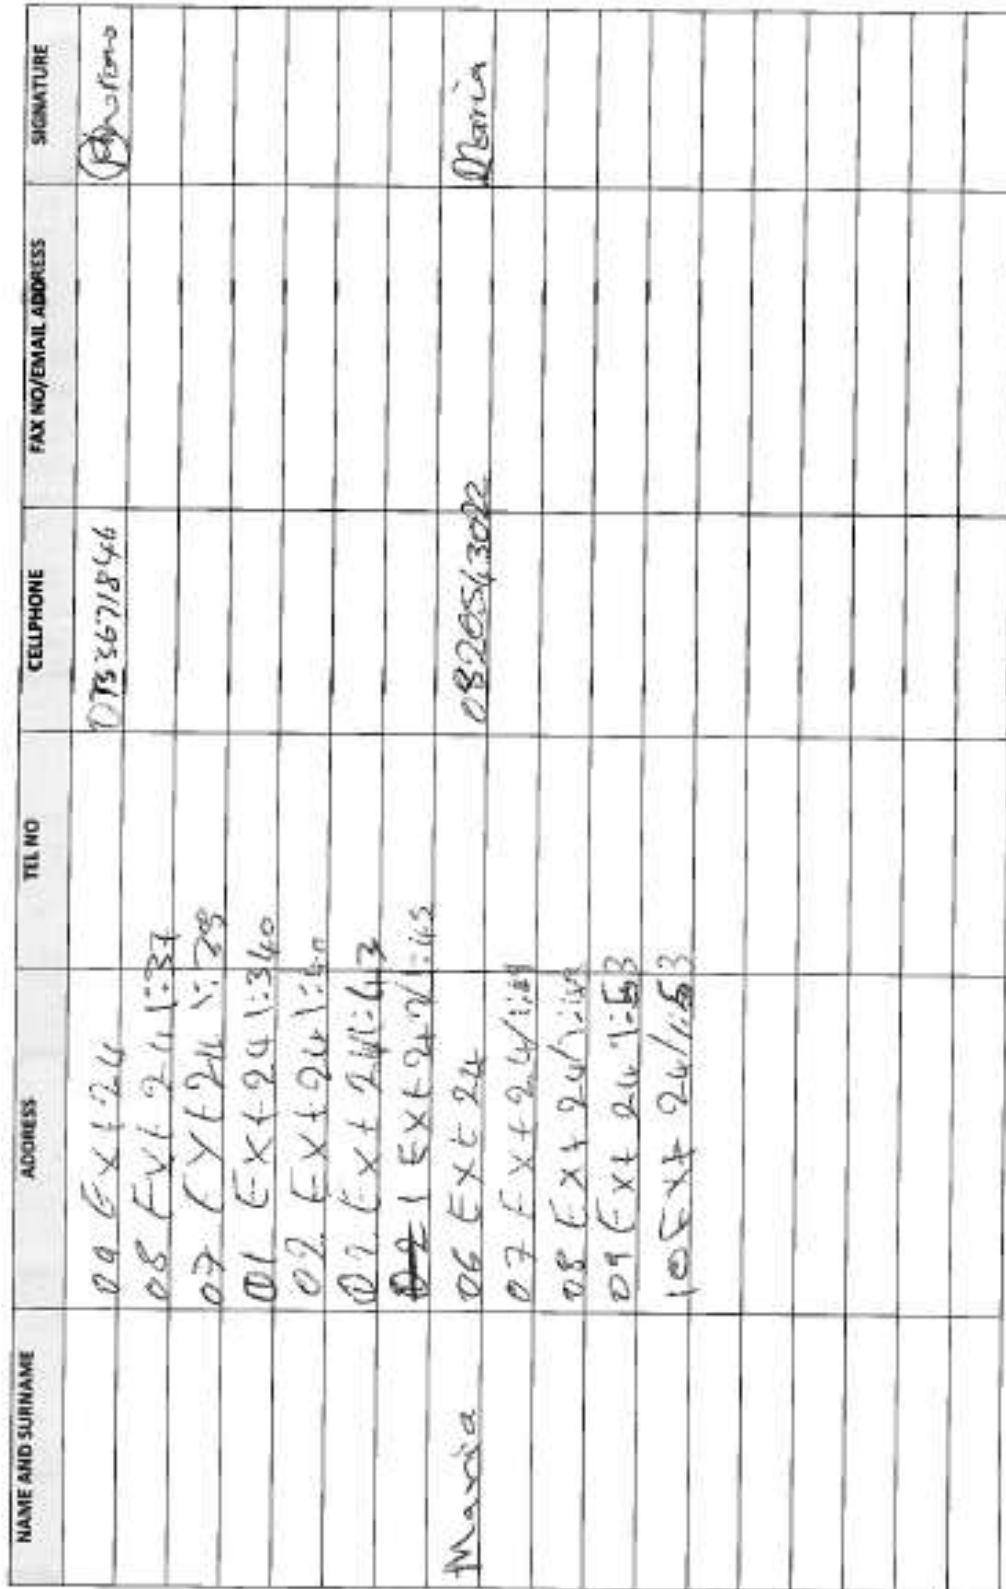 NAME AND SURNAME ADDRESS TEL NO CELLPHONE FAX NO/EMAIL ADDRESS SIGNATURE
09 Ext 24
08 Ext 24 1:37
07 Ext 24 1:39
01 Ext 24 1:340
02 Ext 24 1:40
Ext 24 1:43
1 Ext 24 1:45
Maria 06 Ext 24 Maria
07 Ext 24/
08 Ext 24/
09 Ext 24 1:53
10 Ext 24/1:53